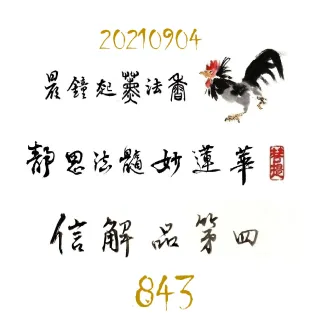 20210904
晨鐘起薰法香
靜思法髓妙蓮華
信解品第四
843